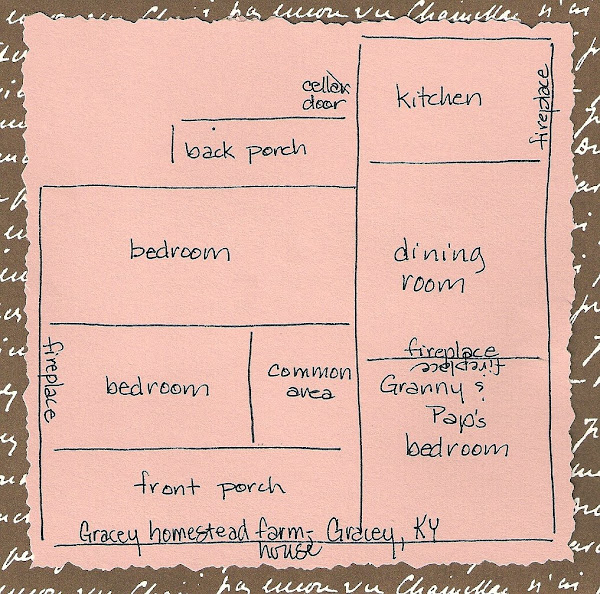 cellar
door
kitchen
fireplace
back porch
bedroom
dining
room
fireplace
fireplace
fireplace
bedroom
common
area
Granny &
Pap's
bedroom
front porch
Gracey homestead farm-
house
Gracey, KY